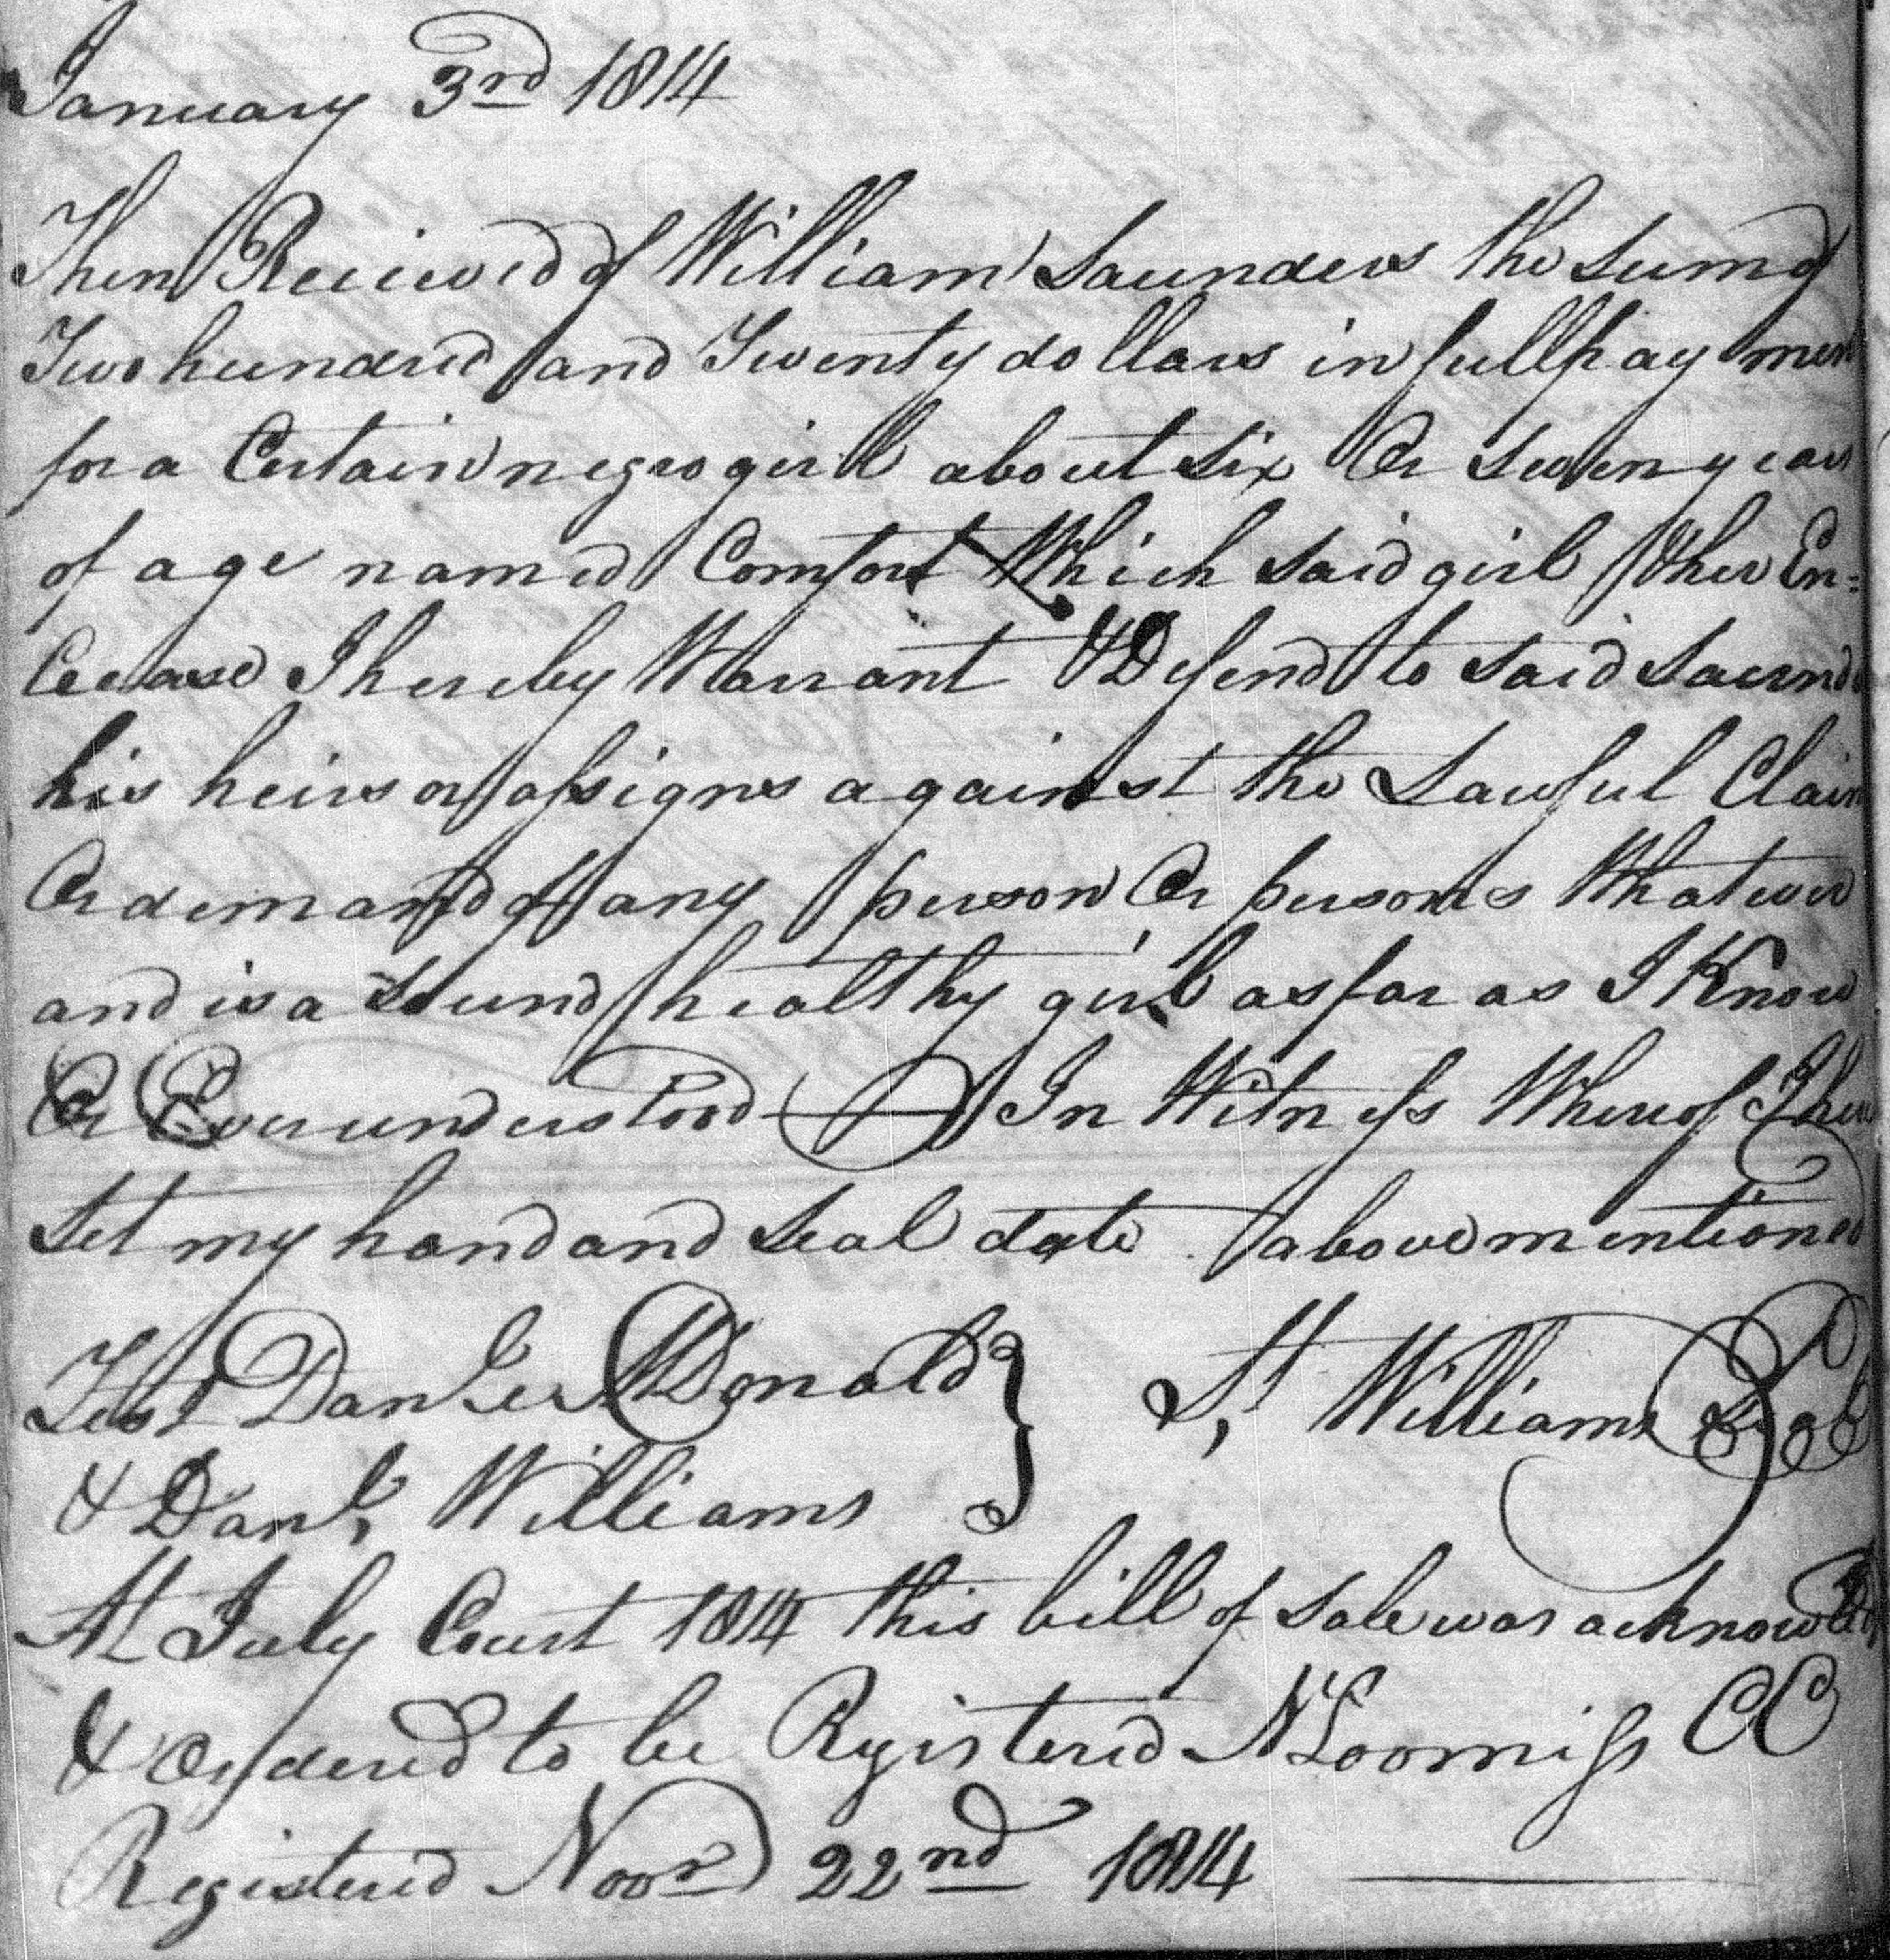 January 3rd 1814
Then Received of William Saunders the Sum of
Two hundred and Twenty dollars in full pay ment
for a Certain negro girll about Six Or Seven years
of age named Comfort Which said girl & her En=
Cerease I hereby Warrant & Defend to said Saund
his heirs or assigns against the Lawful Claim
Or demand of any person Or persons Whatever
and is a Sound healthy girl as far as I Know
Or Ever understood In Witness Whereof I here
Set my hand and Seal date above mentioned
Test Danl McDonald } St Williams Seal
& Danl, Williams
At July Court 1814 this bill of Sale was acknowled
& Ordered to be Registered N Loomiss CC
Registered Novr 22nd 1814